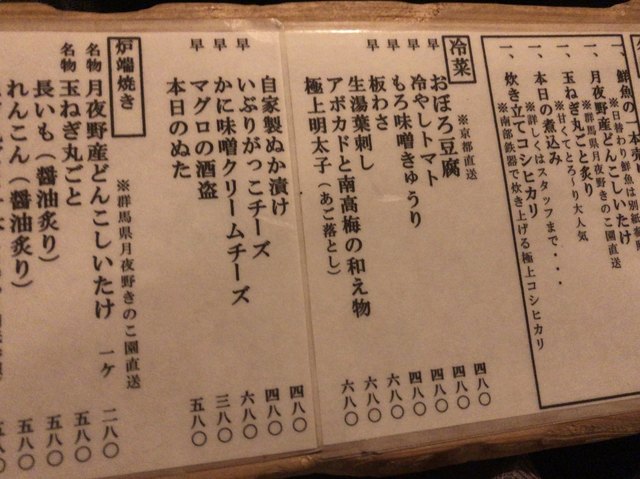 一、鮮魚の一本
※日替わり鮮魚は別紙参照
一、月夜野産どんこしいたけ
※群馬県月夜野きのこ園直送
一、玉ねぎ丸ごと炙り
※甘くてとろ〜り大人気
一、本日の煮込み
※詳しくはスタッフまで・・・
一、炊き立てコシヒカリ
※南部鉄器で炊き上げる極上コシヒカリ
冷菜
※京都直送
早 おぼろ豆腐 四八〇
早 冷やしトマト 四八〇
早 もろ味噌きゅうり 四八〇
早 板わさ 四八〇
生湯葉刺し 六八〇
アボカドと南高梅の和え物 六八〇
極上明太子(あご落とし) 六八〇
自家製ぬか漬け 四八〇
早 いぶりがっこチーズ 四八〇
早 かに味噌クリームチーズ 六八〇
早 マグロの酒盗 三八〇
本日のぬた 五八〇
炉端焼き
※群馬県月夜野きのこ園直送
名物 月夜野産どんこしいたけ 一ケ 二八〇
名物 玉ねぎ丸ごと 五八〇
長いも(醤油炙り) 五八〇
れんこん(醤油炙り) 五八〇